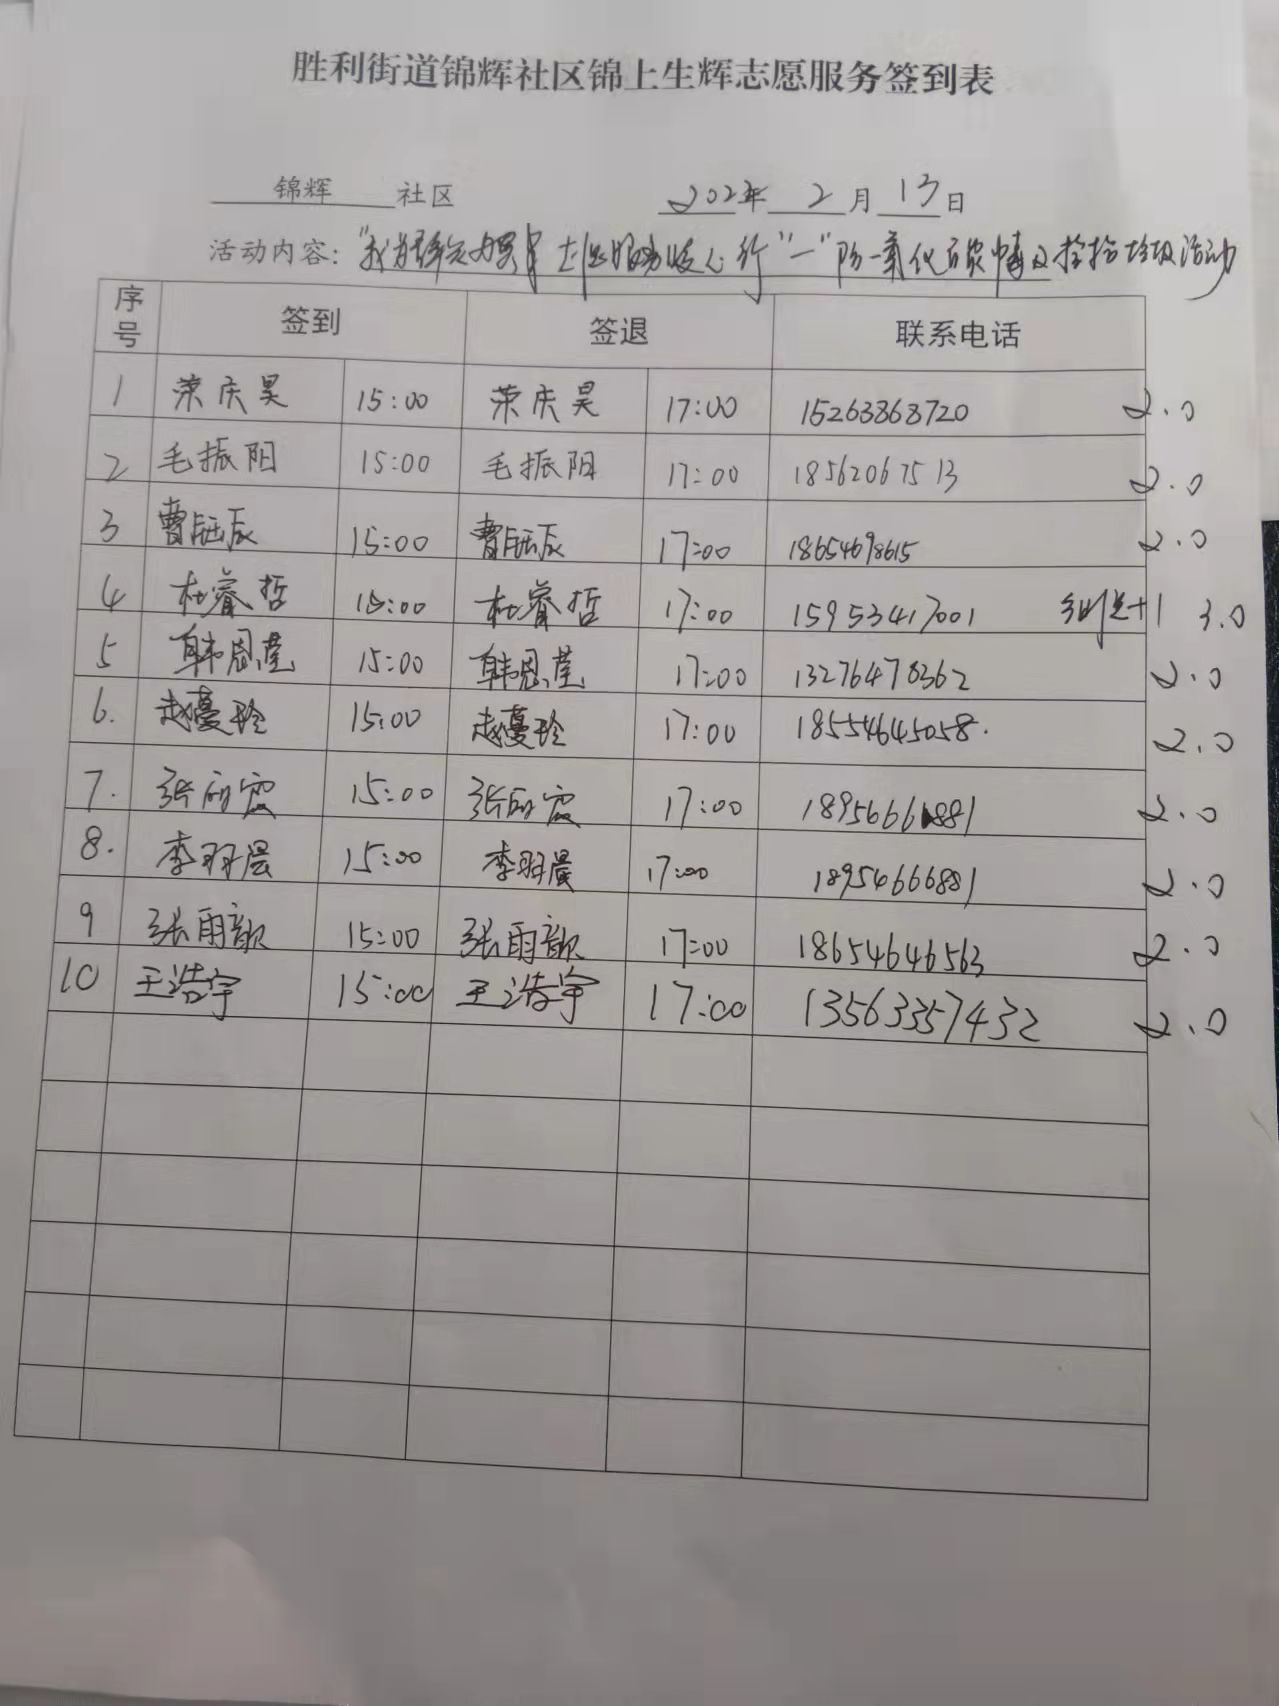 胜利街道锦辉社区锦上生辉志愿服务签到表
锦辉 社区 2022年 2 月 13 日
活动内容："我为群众办实事 志愿服务暖心行"一"防一氧化碳中毒及捡拾垃圾活动
序号 签到 签退 联系电话
1 荣庆昊 15:00 荣庆昊 17:00 15263868720 2.0
2 毛振阳 15:00 毛振阳 17:00 18562067513 2.0
3 曹钰辰 15:00 曹钰辰 17:00 18654698615 2.0
4 杜睿哲 15:00 杜睿哲 17:00 15953417001 +1 3.0
5 韩恩莹 15:00 韩恩莹 17:00 13276478362 2.0
6. 赵蔓玲 15:00 赵蔓玲 17:00 18554645058. 2.0
7. 张雨霞 15:00 张雨霞 17:00 2.0
8. 李羽晨 15:00 李羽晨 17:00 18954666881 2.0
9 张雨歆 15:00 张雨歆 17:00 18654646563 2.0
10 王浩宇 15:00 王浩宇 17:00 13563357432 2.0